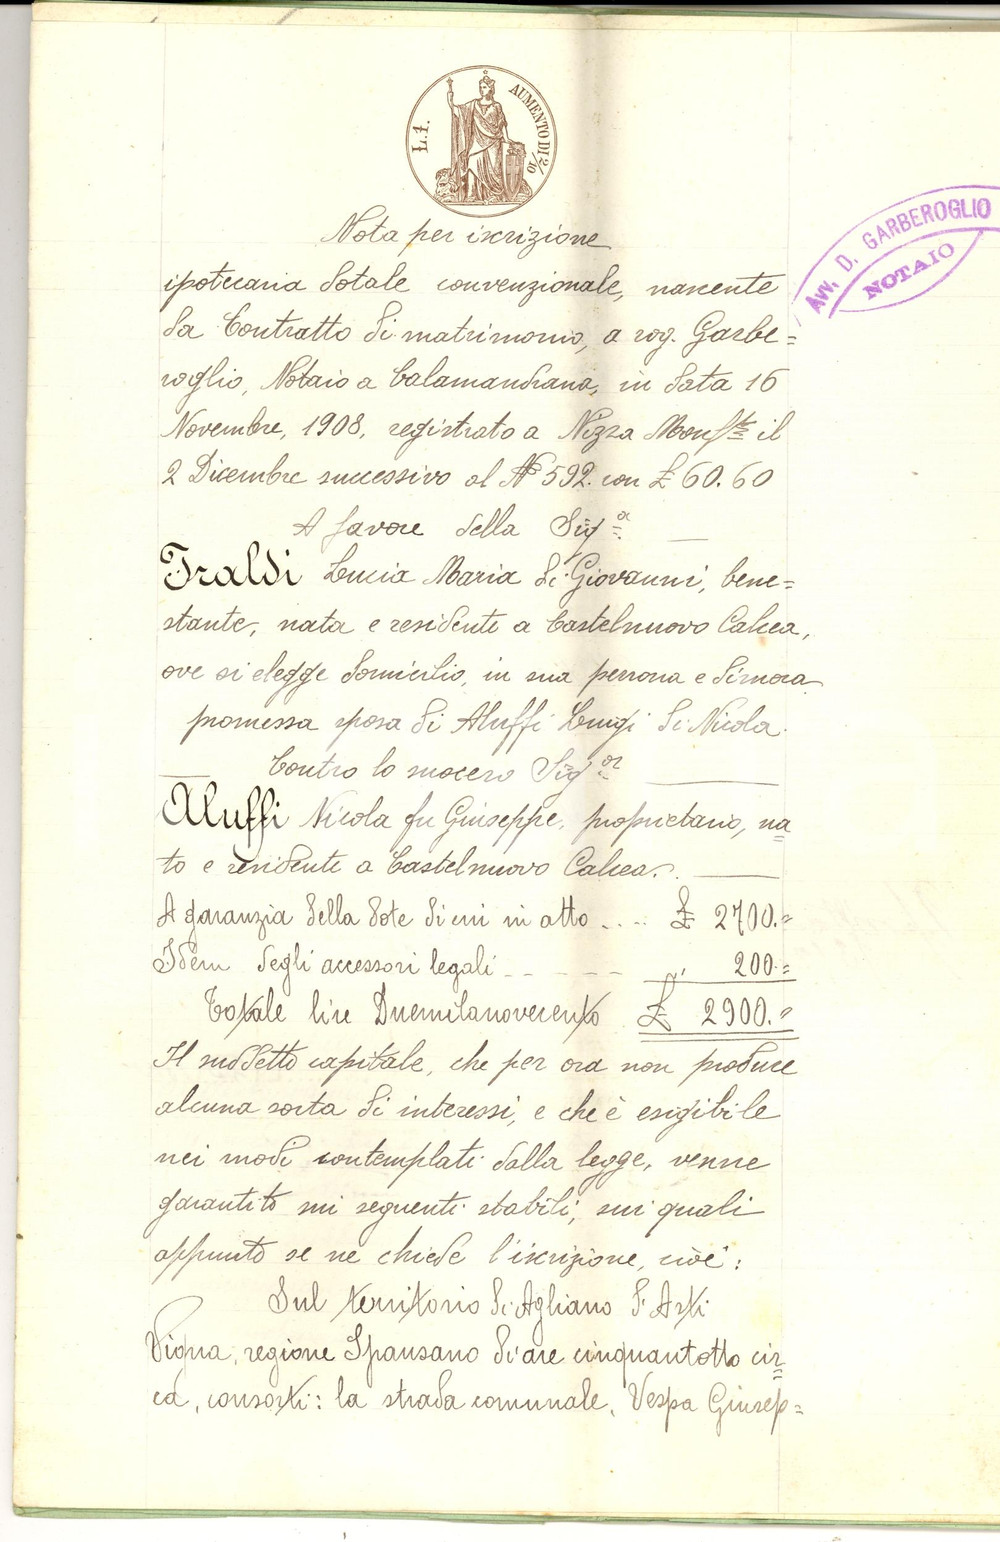 L. 1. AUMENTO DI 2/10
Avv. D. GARBEROGLIO
NOTAIO
Nota per iscrizione
ipotecaria dotale convenzionale, nascente
da Contratto di matrimonio, a rog. Garbe=
roglio, Notaio a Calamandrana, in data 16
Novembre, 1908, registrato a Nizza Monf.to il
2 Dicembre successivo al No 592. con £ 60.60
A favore della Sig.a
Traldi Lucia Maria di Giovanni, bene=
stante, nata e residente a Castelnuovo Calcea,
ove si elegge domicilio, in sua persona e dimora
promessa sposa di Aluffi Luigi di Nicola.
Contro lo suocero Sig.or
Aluffi Nicola fu Giuseppe, proprietario, na=
to e residente a Castelnuovo Calcea.
A garanzia della dote di cui in atto .... £ 2700.=
Idem degli accessori legali - - - - - " 200.=
Totale lire Duemilanovecento £ 2900.=
Il suddetto capitale, che per ora non produce
alcuna sorta di interessi, e che è esigibile
nei modi contemplati dalla legge, venne
garantito sui seguenti stabili, sui quali
appunto se ne chiede l'iscrizione, cioè:
Sul territorio di Agliano d'Asti
Vigna, regione Spansano di are cinquantotto cir=
ca, consorti: la strada comunale, Vespa Giusep=